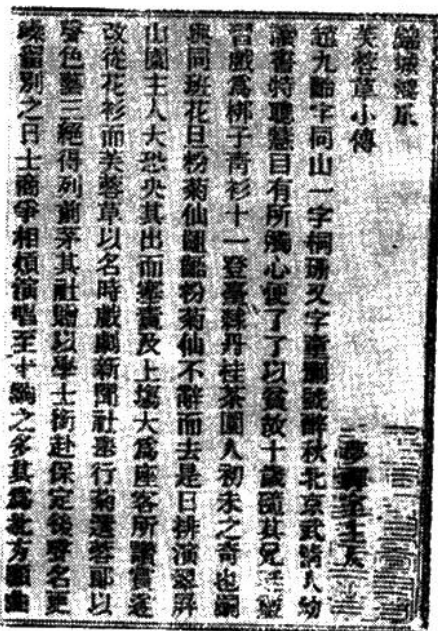 芙蓉草小傳
趙九齡字桐山一字桐珊又字童嗣號醉秋北京武清人幼
讀書特聰慧目有所觸心便了了以貧故十歲隨其兄
習戲為梆子青衫十一登臺隸丹桂茶園人初未之奇也嗣
與同班花旦粉菊仙齟齬粉菊仙不辭而去是日排演翠屏
山園主人大恐央其出而塞責及上場大為座客所讚賞遂
改從花衫而芙蓉草以名時戲劇新聞社舉行菊選蓉郎以
聲色藝三絕得列前茅其社贈以學士銜赴保定後聲名更
噪留別之日士商爭相煩演唱至十齣之多其為北方顧曲